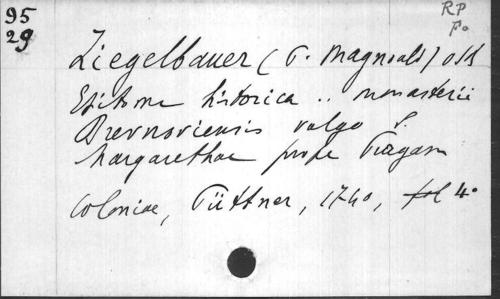 95
29
RP
Fo
Ziegelbauer (P. Magnoald) OSB
Epitome historica .. monasterii
Brevnoviensis vulgo S.
Margarethae prope Pragam
Coloniae, Püttner, 1740, fol 4°